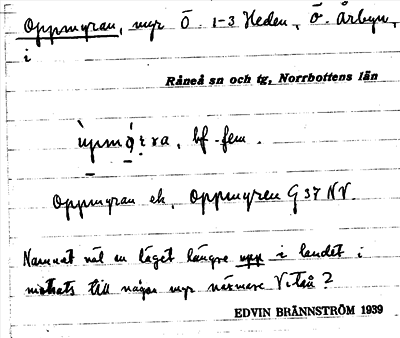 Oppmyran, myr Ö. 1-3 Heden, Ö. Årbyn,
i
Råneå sn och tg, Norrbottens län
bf. fem.
Oppmyran ek, Oppmyren G 37 NV.
Namnet väl en läget längre upp i landet i
motsats till någon myr närmare Vitån?
EDVIN BRÄNNSTRÖM 1939